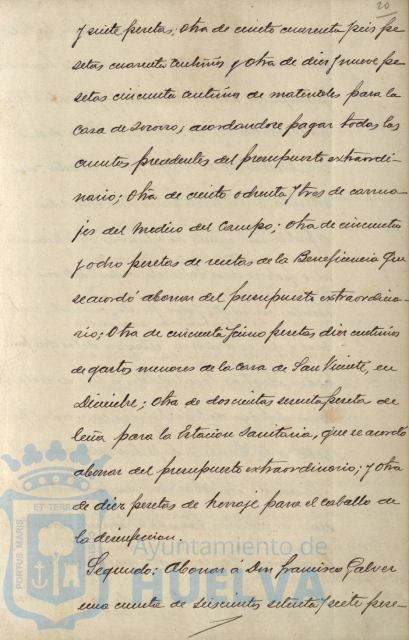 20
y siete pesetas; otra de ciento cuarenta y seis pe-
setas cuarenta céntimos y otra de diez y nueve pe-
setas cincuenta céntimos de materiales para la
casa de socorro; acordándose pagar todas las
cuentas precedentes del presupuesto extraordi-
nario; otra de ciento ochenta y tres de carrua-
jes del Médico del Campo; otra de cincuenta
y ocho pesetas de recetas de la Beneficencia que
se acordó abonar del presupuesto extraordina-
rio; otra de cincuenta y cinco pesetas diez céntimos
de gastos menores de la casa de San Vicente, en
Diciembre; otra de doscientas sesenta pesetas de
leña para la Estación Sanitaria, que se acordó
abonar del presupuesto extraordinario; y otra
de diez pesetas de herraje para el caballo de
la desinfección.
Segundo: Abonar á Don Francisco Galver
una cuenta de seiscientas setenta y siete pese-
PORTUS MARIS ET TERRÆ
Ayuntamiento de
HUELVA